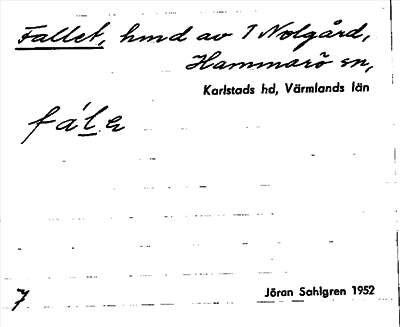 Fallet, hmd av 1 Nolgård,
Hammarö sn,
Karlstads hd, Värmlands län
fále
7
Jöran Sahlgren 1952